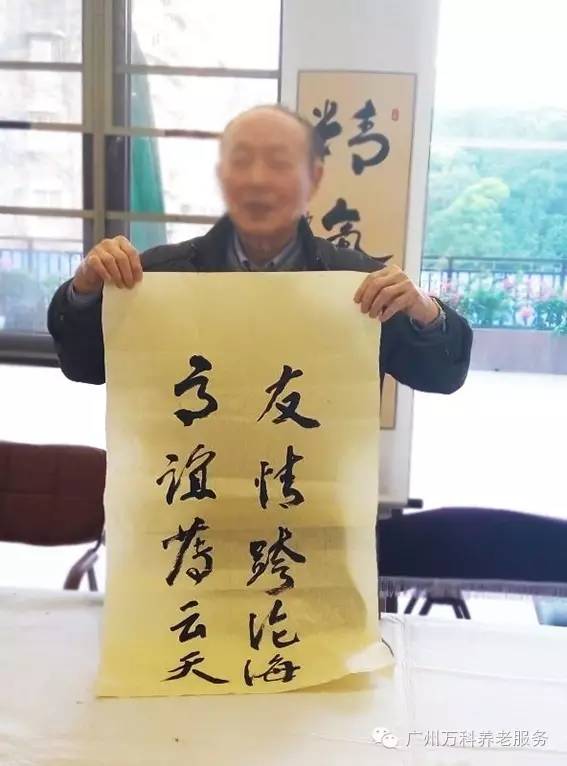 友情跨沧海
高谊薄云天
精氣
广州万科养老服务